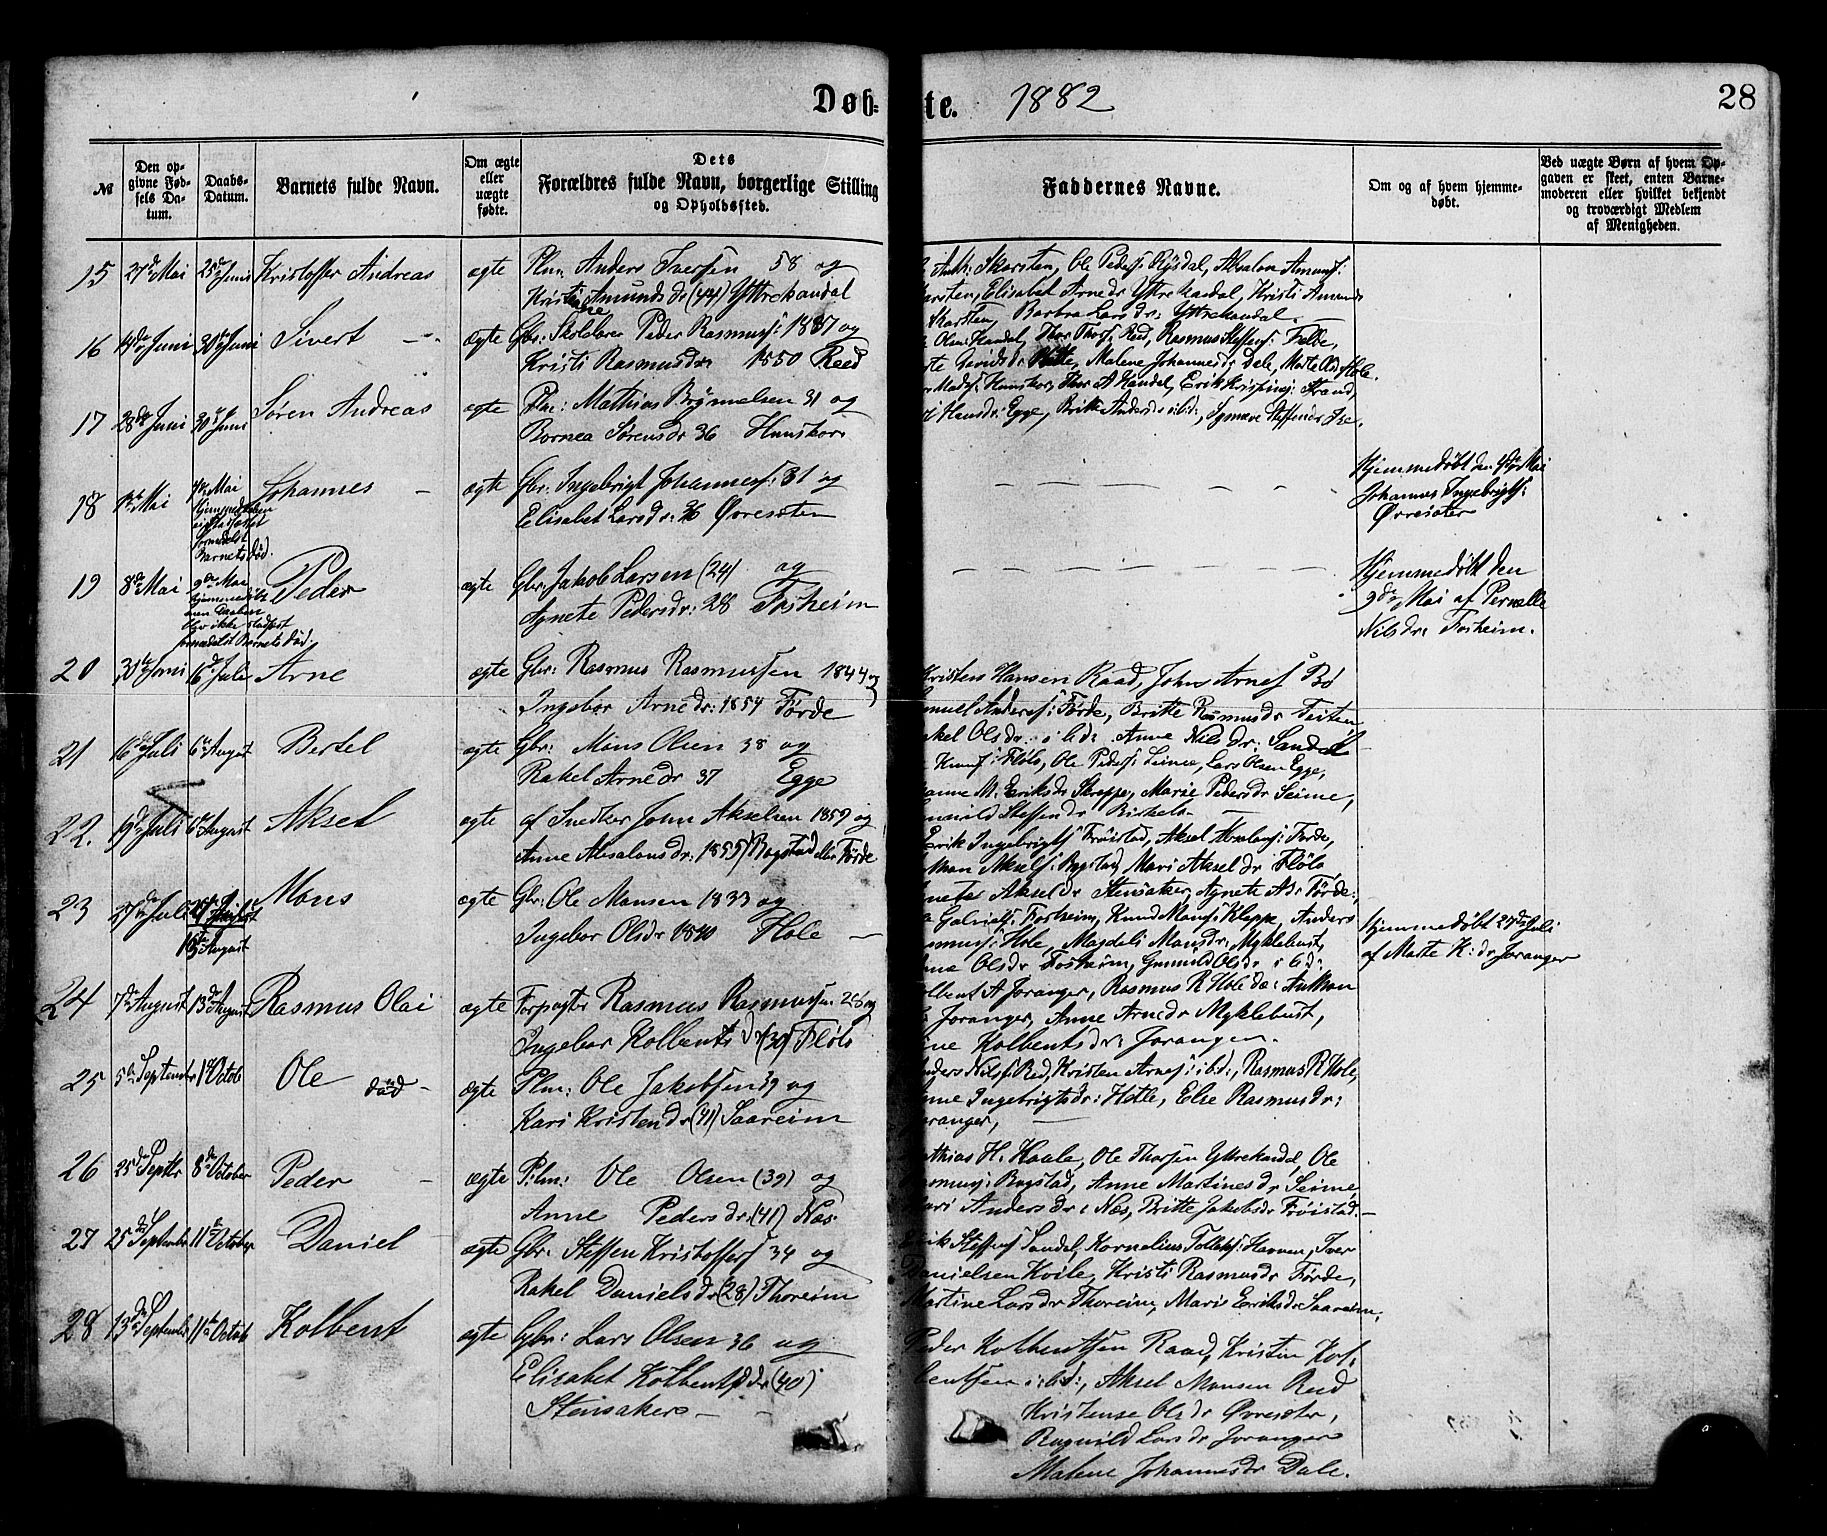 Døb-
te. 1882
28
№
Den op-
givne Fød-
sels Da-
tum.
Daabs-
Datum.
Barnets fulde Navn.
Om ægte
eller
uægte
fødte.
Dets
Forældres fulde Navn, borgerlige Stilling
og Opholdssted.
Faddernes Navne.
Om og af hvem hjemme-
døbt.
Ved uægte Børn af hvem Op-
gaven er skeet, enten Barne-
moderen eller hvilket bekjendt
og troværdigt Medlem
af Menigheden.
15 27de Mai 25de Juni Kristoffer Andreas ægte Plm: Anders Iversen 58 og
Amundsdr (44) Yttrekandal
Skarsten, Ole Peders: Rysdal, Absalon Amunds:
Elisabet Arnedr Yttrekandal, Kristi Amunds
Skarsten, Barbra Larsdr: Yttrekandal.
16 Juni Juni Sivert ægte Gbr: Skolelærer Peder Rasmus: og
Kristi Rasmusdr: 1850 Reed
Kandal, Thor Thors: Red, Rasmus Steffens: Felde,
Davidsdr Malene Johannesdr Dale, Marte Olsdr Hole.
17 28de Juni Juni Søren Andreas ægte Plm: Mathias Brynnelsen 31 og
Bornea Sørensdr 36 Hunskor
Mads: Hunskor, Thor A Kandal, Erik Strand,
Hansdr: Egge, Britte Andersdr ibd:,
18 Mai Mai Johannes ægte Gbr: Ingebrigt Johannes: 31 og
Elisabet Larsdr: 36 Øvresæter
formedelst
Barnets Død.
Hjemmedøbt den Mai
Johannes Ingebrigts:
Øvresæter
19 8de Mai 9de Mai Peder ægte Gbr: Jakob Larsen (24) og
Agnete Pedersdr: 28 Fosheim
hjemmedøbt
men Daaben
blev ikke stadfæst
formedelst Barnets Død.
Hjemmedøbt den
9de Mai af Pernelle
Nilsdr: Fosheim.
20 Juni 16de Juli Arne ægte Gbr: Rasmus Rasmussen 1844 og
Ingebor Arnedr: 1854 Førde
Kristen Hansen Raad, John Arnes Bø
Anders: Førde, Britte Rasmusdr Feiten
Olsdr: ibd: Anne Nilsdr: Sandal
21 16de Juli 6te August Bertel ægte Gbr: Mons Olsen 38 og
Rakel Arnedr 37 Egge
Knuds: Fløló, Ole Peders: Seime, Lars Olsen Egge,
M. Eriksdr Skreppe, Marie Pedersdr Seime,
Steffensdr Birkelo
22. 19de Juli 6te August Aksel ægte af Snedker John Akselsen 1859 og
Anne Absalonsdr: 1855) Rogstad eller Førde
Erik Ingebrigts Frøistad, Aksel Absalons: Førde,
Aksels: Rogstad, Mari Akseldr Fløló
Akseldr Stensaker, Agnete Førde:
23 27de Juli Mons ægte Gbr: Ole Monsen 1833 og
August
Ingebor Olsdr 1840 Hole
Gabriels: Fosheim, Knud Mons: Kleppe, Anders
Hole, Magdeli Monsdr: Myklebust,
Olsdr Fosheim, Gunnild Olsdr ibd:
Hjemmedøbt 27de Juli
af Marte K: dr Joranger
24 7de August 13de August Rasmus Olai ægte Forpagter Rasmus Rasmussen 26 og
Ingebor Kolbentsdr (30) Fløló
A Joranger, Rasmus R Hole
Joranger, Anne Arnedr Myklebust,
Kolbentsdr: Joranger.
25 September Octob Ole død ægte Plm: Ole Jakobsen og
Kari Kristendr (41) Saareim
Nils: Red, Kristen Arnes: ibd:, Rasmus R Hole,
Ingebrigtsdr: Hetle, Else Rasmusdr:
Joranger,
26 25de Septbr 8de October Peder ægte Plm: Ole Olsen (39) og
Anne Pedersdr (41) Næs.
H. Haale, Ole Thorsen Yttrekandal, Ole
Rogstad, Anne Martinesdr Seime,
Andersdr: Næs, Britte Jakobsdr Frøistad.
27 25de September 11te October Daniel ægte Gbr: Steffen Kristoffers 34 og
Rakel Danielsdr (28) Thoreim
Erik Steffens Sandal, Kornelius Tollefs: Havnen, Iver
Danielsen Kvile, Kristi Rasmusdr Førde,
Martine Larsdr Thoreim, Maris Eriksdr Saareim,
28 13de September 11te Octob Kolbent ægte Gbr: Lars Olsen 36 og
Elisabet Kolbentsdr (40)
Stensaker
Peder Kolbentsen Raad, Kristen Kol-
bentsen ibd:, Aksel Monsen Red
Kristense Olsdr Øvresæter,
Ragnild Larsdr Joranger
Malene Johannesdr Dale.